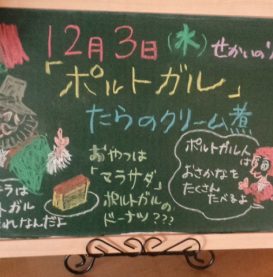 12月3日(水)せかいの
「ポルトガル」
たらのクリーム煮
おやつは
「マラサダ」
ポルトガルの
ドーナツ???
ポルトガル人
は
おさかなを
たくさん
たべるよ
ラは
トガル
れなんだよ